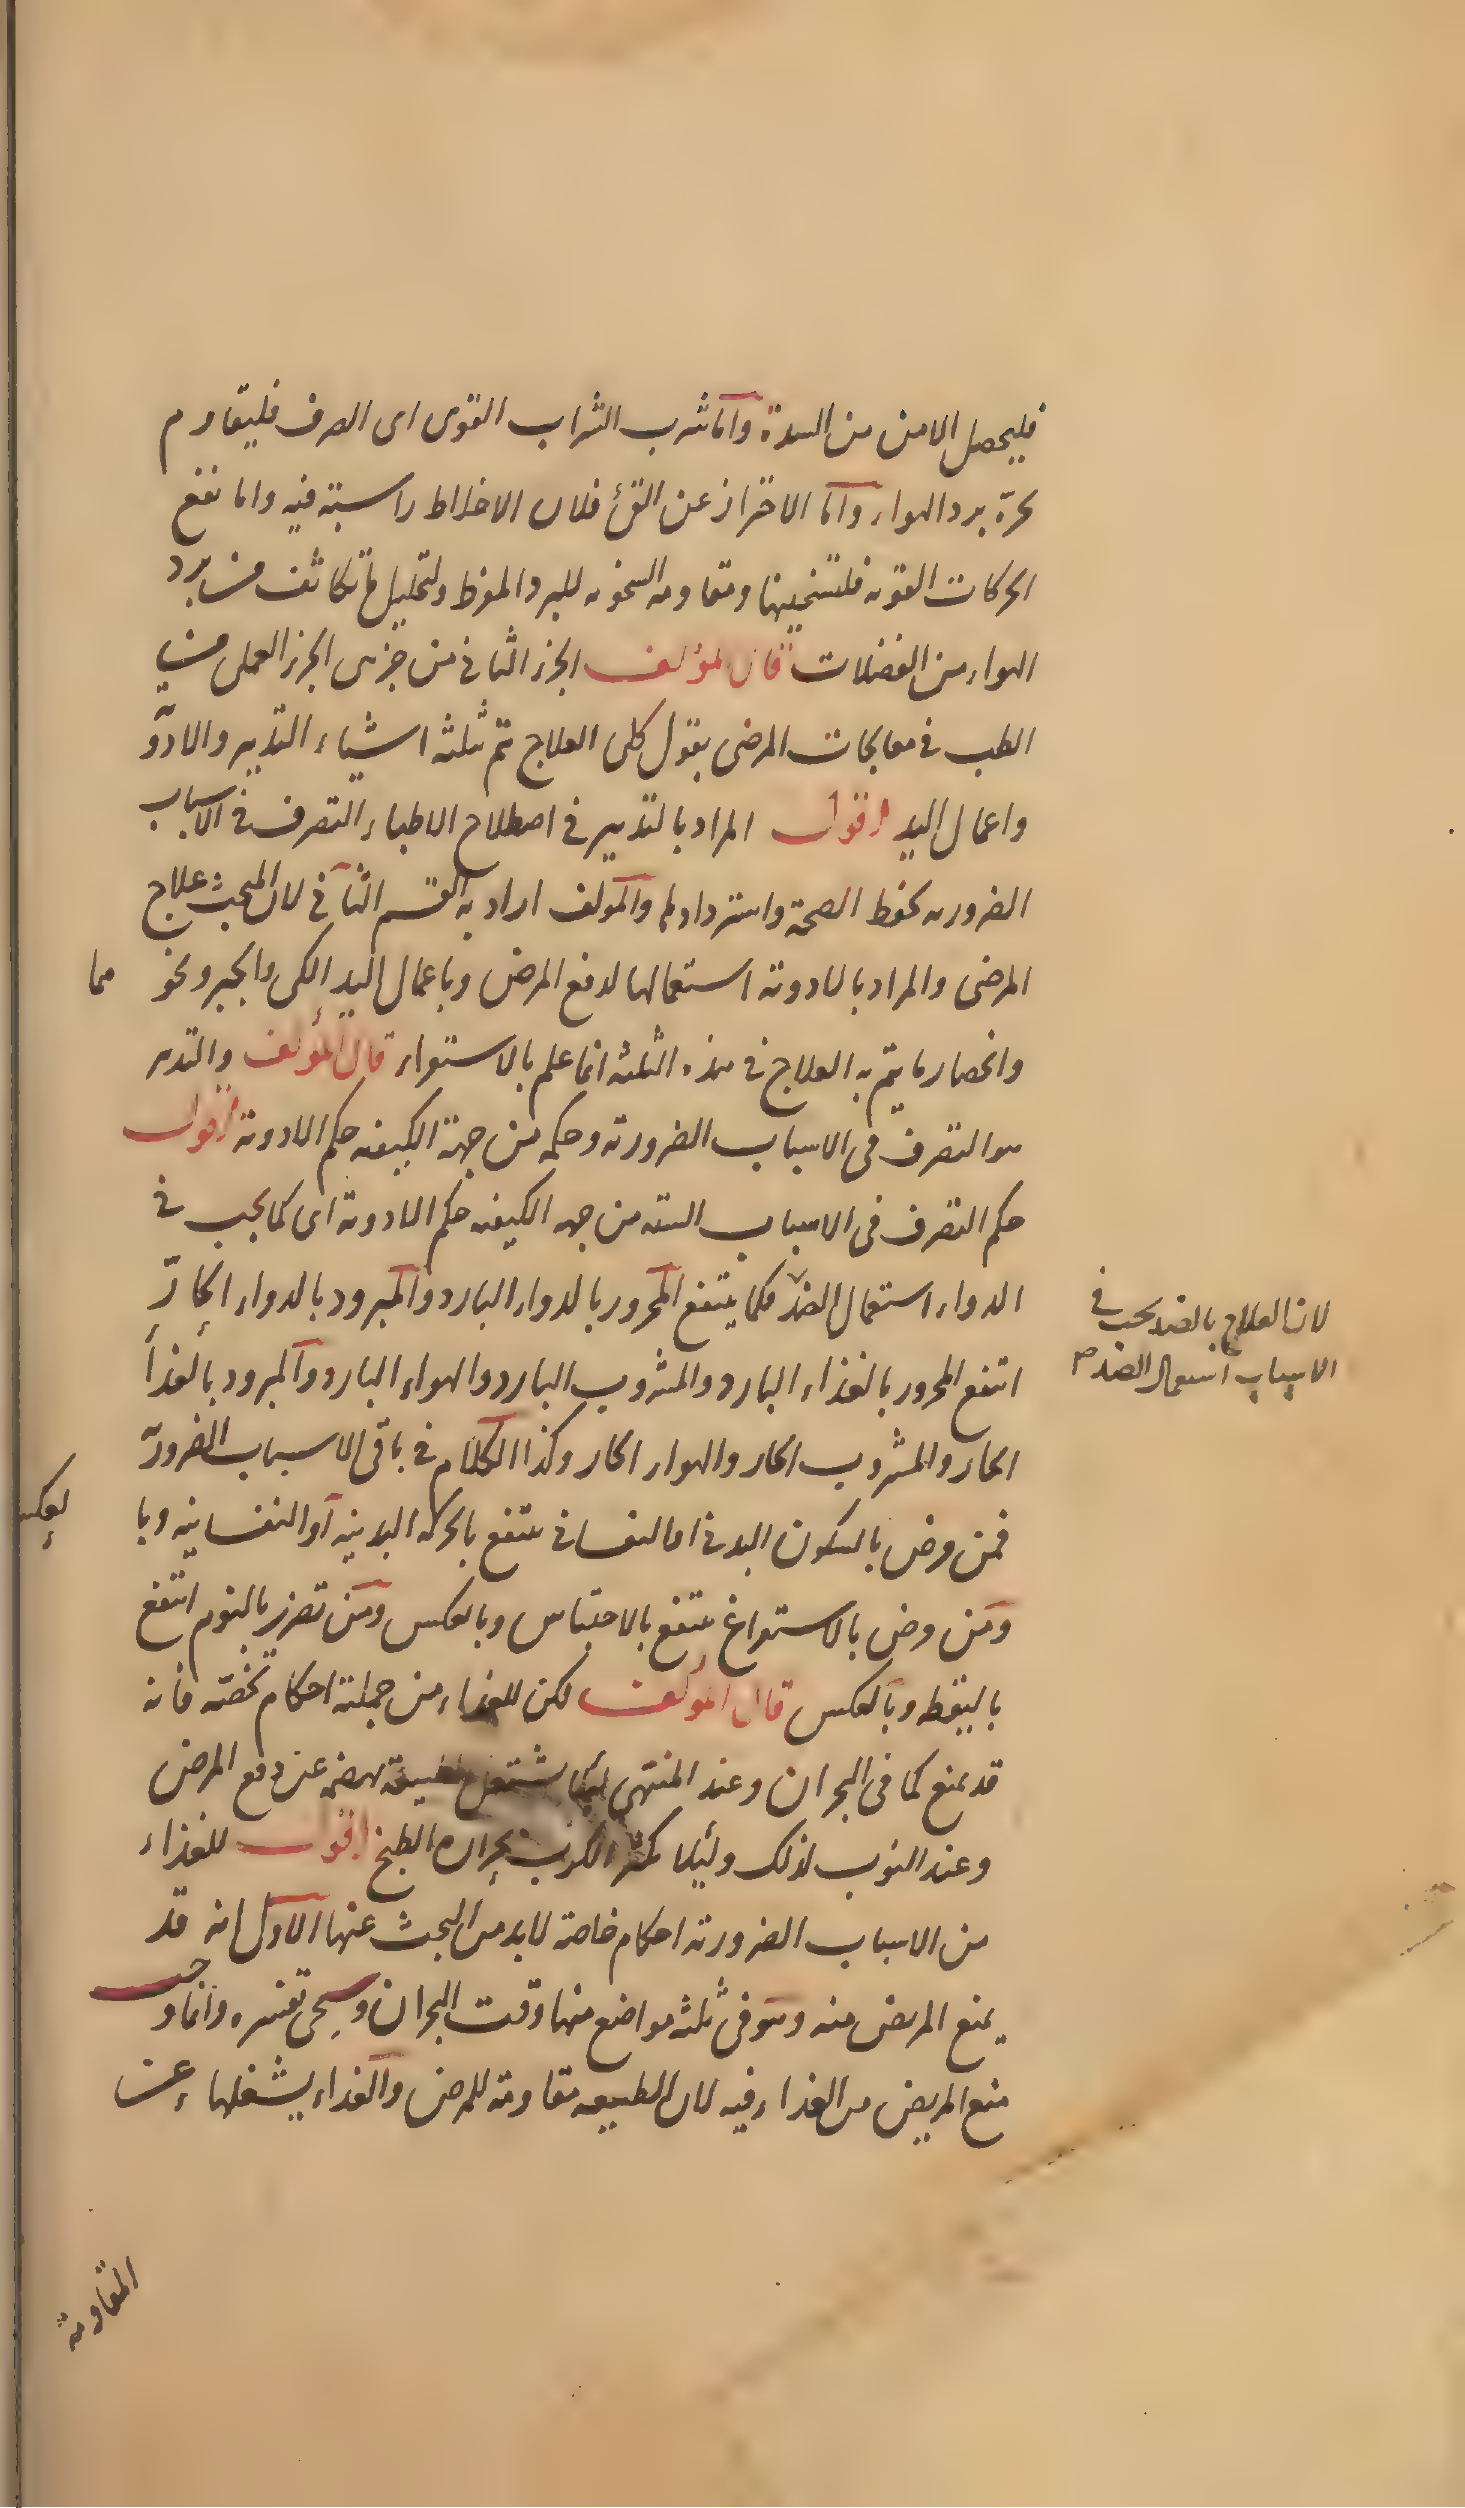 فليحصل الامن من السدة وامّا شرب الشراب القوى اى الصرف فليقاوم
بحرّه برد الهواء وامّا الاحتراز عن القئ فلان الاخلاط راسبة فيه واما نفع
الحركات القويه فلتسخينها ومقاومه السخونه للبرد المفرط ولتحليل ما تكاثف من برد
الهواء من الفضلات قال المؤلف الجزء الثانى من جزئى الجزء العملى من
الطب فى معالجات المرضى بقول كلى العلاج يتم بثلثة اشياء التدبير والادويّة
واعمال اليد اقول المراد بالتدبير فى اصطلاح الاطباء التصرف فى الاسباب
الضروريه لحفظ الصحة واستردادها والمؤلف اراد به القسم الثانى لان المبحث علاج
المرضى والمراد بالادوية استعمالها لدفع المرض وباعمال اليد الكى والجبر ونحو هما
وانحصار ما يتم به العلاج فى هذه الثلثة انما علم بالاستقراء قال المؤلف والتدبير
هو التصرف فى الاسباب الضرورية وحكمه من جهة الكيفيه حكم الادوية اقول
حكم التصرف فى الاسباب الستة من جهه الكيفيه حكم الادوية اى كما يجب فى
الدواء استعمال الضدّ فكما ينتفع المحرور بالدواء البارد والمبرود بالدواء الحارّ
لان العلاج بالضد يجب فى
الاسباب استعمال الضد صح
انتفع المحرور بالغذاء البارد والمشروب البارد والهواء البارد والمبرود بالغذاء
الحار والمشروب الحار والهواء الحار وكذا الكلام فى باقى الاسباب الضروريّة
فمن مرض بالسكون البدنى او النفسانى ينتفع بالحركه البدنيه او النفسانيه وبا
لعكس
ومن مرض بالاستفراغ ينتفع بالاحتباس وبالعكس ومن تضرر بالنوم انتفع
باليقظه وبالعكس قال المؤلف لكن للغذاء من جملته احكام تخصّه فانه
قد يمنع كما فى البحران وعند المنتهى لئلا تشتغل الطبيعة بهضمه عن دفع المرض
وعند النوب لذلك ولئلا يكثر الكرب بحرارة الطبخ اقول للغذاء
من الاسباب الضرورية احكام خاصة لابد من البحث عنها الاول انه قد
يمنع المريض منه وهو فى ثلثة مواضع منها وقت البحران وسيجئ تفسيره وانما وجب
منع المريض من الغذاء فيه لان الطبيعه مقاومة للمرض والغذاء يشغلها عن
المقاومة